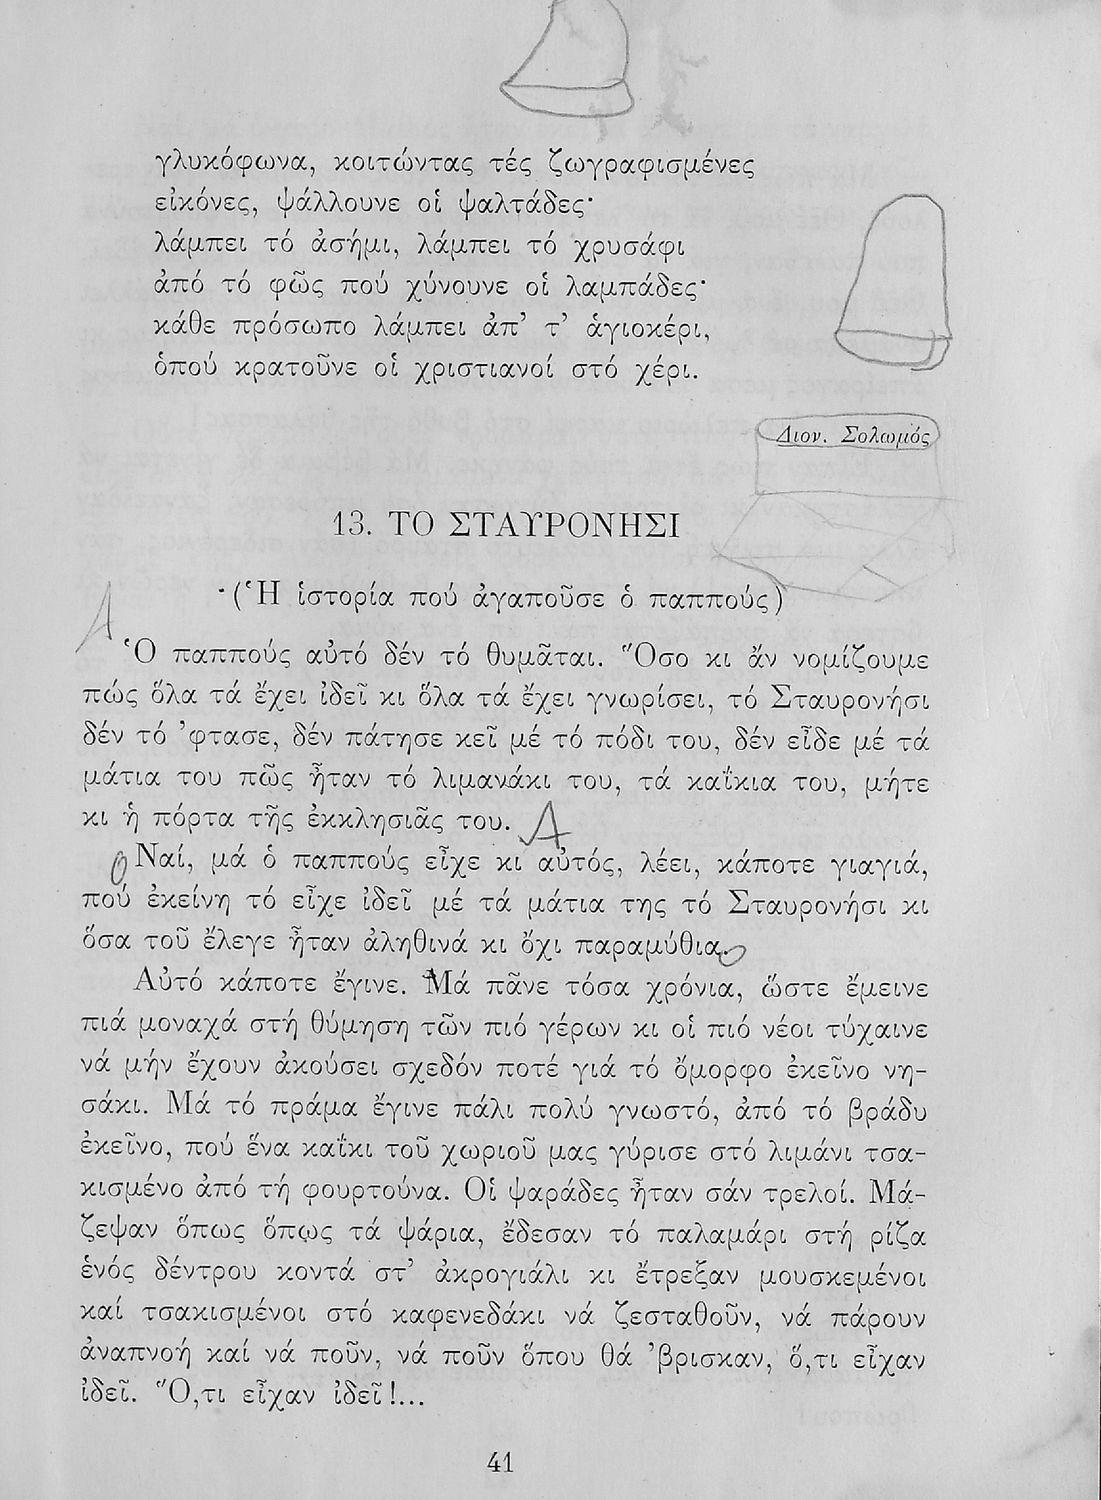 γλυκόφωνα, κοιτώντας τές ζωγραφισμένες
εἰκόνες, ψάλλουνε οἱ ψαλτάδες·
λάμπει τό ἀσήμι, λάμπει τό χρυσάφι
ἀπό τό φῶς πού χύνουνε οἱ λαμπάδες·
κάθε πρόσωπο λάμπει ἀπ’ τ’ ἁγιοκέρι,
ὁπού κρατοῦνε οἱ χριστιανοί στό χέρι.
Διον. Σολωμός
13. ΤΟ ΣΤΑΥΡΟΝΗΣΙ
(Ἡ ἱστορία πού ἀγαποῦσε ὁ παππούς)
Α
Ὁ παππούς αὐτό δέν τό θυμᾶται. Ὅσο κι ἄν νομίζουμε
πώς ὅλα τά ἔχει ἰδεῖ κι ὅλα τά ἔχει γνωρίσει, τό Σταυρονήσι
δέν τό ’φτασε, δέν πάτησε κεῖ μέ τό πόδι του, δέν εἶδε μέ τά
μάτια του πῶς ἦταν τό λιμανάκι του, τά καΐκια του, μήτε
κι ἡ πόρτα τῆς ἐκκλησιᾶς του. Α
Ναί, μά ὁ παππούς εἶχε κι αὐτός, λέει, κάποτε γιαγιά,
πού ἐκείνη τό εἶχε ἰδεῖ μέ τά μάτια της τό Σταυρονήσι κι
ὅσα τοῦ ἔλεγε ἦταν ἀληθινά κι ὄχι παραμύθια.
Αὐτό κάποτε ἔγινε. Μά πᾶνε τόσα χρόνια, ὥστε ἔμεινε
πιά μοναχά στή θύμηση τῶν πιό γέρων κι οἱ πιό νέοι τύχαινε
νά μήν ἔχουν ἀκούσει σχεδόν ποτέ γιά τό ὄμορφο ἐκεῖνο νη-
σάκι. Μά τό πράμα ἔγινε πάλι πολύ γνωστό, ἀπό τό βράδυ
ἐκεῖνο, πού ἕνα καΐκι τοῦ χωριοῦ μας γύρισε στό λιμάνι τσα-
κισμένο ἀπό τή φουρτούνα. Οἱ ψαράδες ἦταν σάν τρελοί. Μά-
ζεψαν ὅπως ὅπως τά ψάρια, ἔδεσαν τό παλαμάρι στή ρίζα
ἑνός δέντρου κοντά στ’ ἀκρογιάλι κι ἔτρεξαν μουσκεμένοι
καί τσακισμένοι στό καφενεδάκι νά ζεσταθοῦν, νά πάρουν
ἀναπνοή καί νά ποῦν, νά ποῦν ὅπου θά ’βρισκαν, ὅ,τι εἶχαν
ἰδεῖ. Ὅ,τι εἶχαν ἰδεῖ!...
41